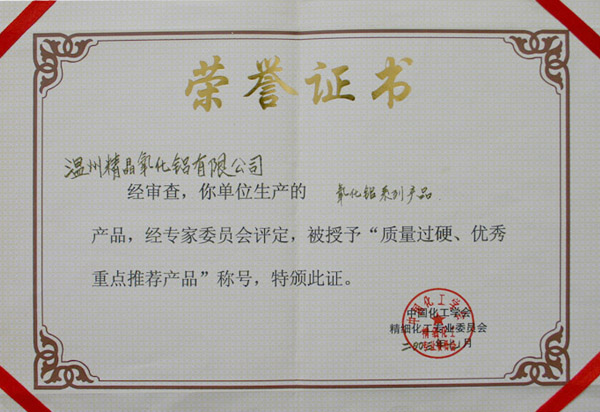 荣誉证书
温州精晶氧化铝有限公司
经审查，你单位生产的 氧化铝系列产品
产品，经专家委员会评定，被授予“质量过硬、优秀
重点推荐产品”称号，特颁此证。
中国化工学会
精细化工专业委员会